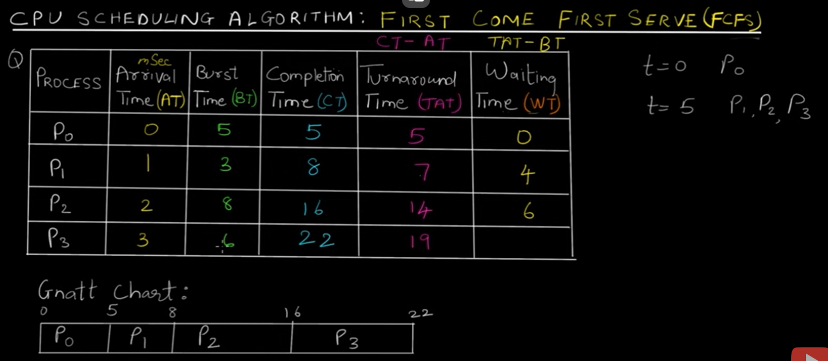 CPU SCHEDULING ALGORITHM: FIRST COME FIRST SERVE (FCFS)
CT-AT TAT-BT
Q
PROCESS mSec Arrival Time (AT) Burst Time (BT) Completion Time (CT) Turnaround Time (TAT) Waiting Time (WT)
P0 0 5 5 5 0
P1 1 3 8 7 4
P2 2 8 16 14 6
P3 3 6 22 19
t=0 P0
t=5 P1, P2, P3
Gnatt Chart:
0 5 8 16 22
P0 P1 P2 P3